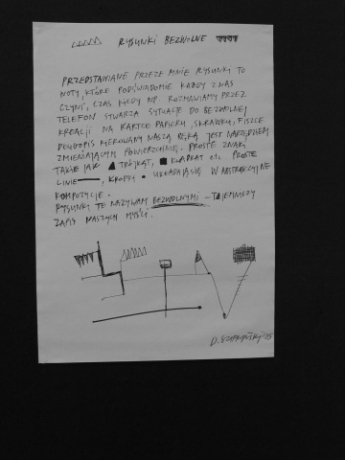 RYSUNKI BEZWOLNE
PRZEDSTAWIANE PRZEZE MNIE RYSUNKI TO
NOTY, KTÓRE PODŚWIADOMIE KAŻDY Z NAS
CZYNI, CZAS KIEDY NP. ROZMAWIAMY PRZEZ
TELEFON STWARZA SYTUACJE DO BEZWOLNEJ
KREACJI NA KARTCE PAPIERU, SKRAWKU, FISZCE
DŁUGOPIS KIEROWANY NASZĄ RĘKĄ JEST NARZĘDZIEM
ZMIENIAJĄCYM POWIERZCHNIĘ. PROSTE ZNAKI
TAKIE JAK TRÓJKĄT, KWADRAT PROSTE
LINIE, KROPKI UKŁADAJĄ W ABSTRAKCYJNE
KOMPOZYCJE.
RYSUNKI TE NAZYWAM BEZWOLNYMI - TAJEMNICZY
ZAPIS NASZYCH MYŚLI.